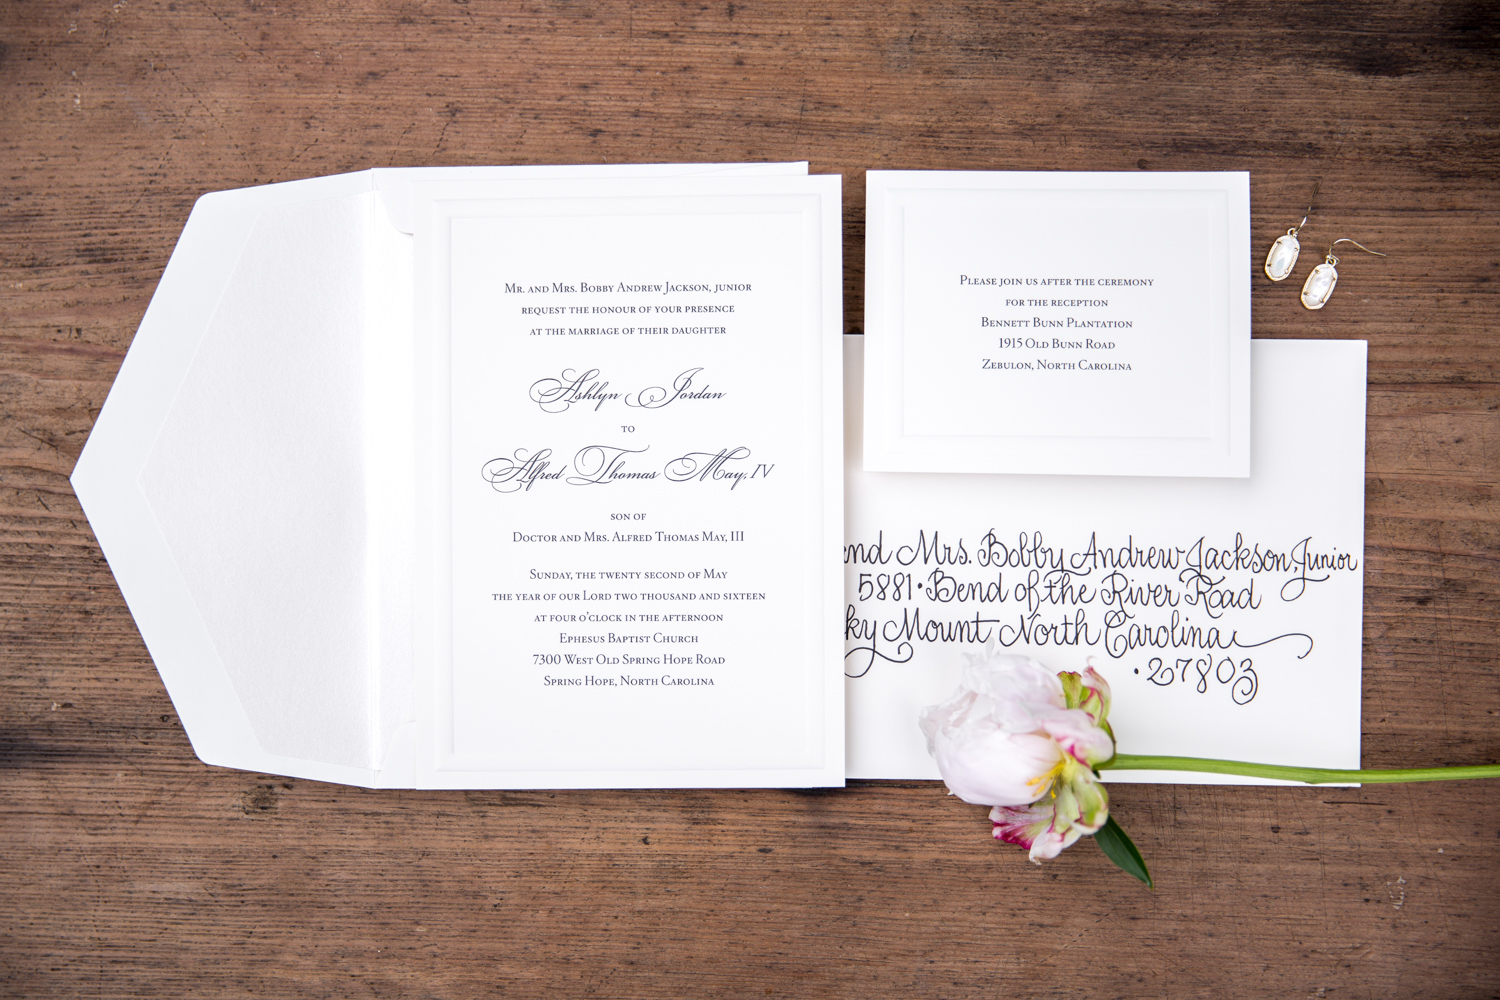 Mr. and Mrs. Bobby Andrew Jackson, junior
request the honour of your presence
at the marriage of their daughter
Ashlyn Jordan
to
Alfred Thomas May, IV
son of
Doctor and Mrs. Alfred Thomas May, III
Sunday, the twenty second of May
the year of our Lord two thousand and sixteen
at four o'clock in the afternoon
Ephesus Baptist Church
7300 West Old Spring Hope Road
Spring Hope, North Carolina
Please join us after the ceremony
for the reception
Bennett Bunn Plantation
1915 Old Bunn Road
Zebulon, North Carolina
and Mrs. Bobby Andrew Jackson, Junior
5881 · Bend of the River Road
ky Mount North Carolina
· 27803